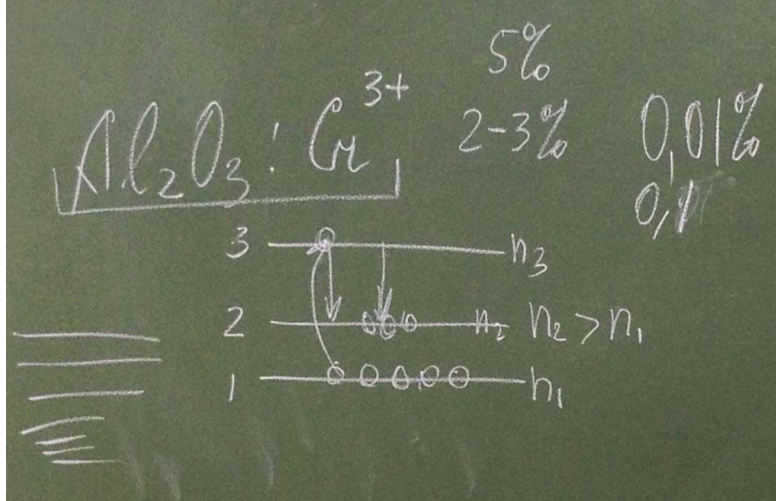 5%
Al₂O₃ : Cr³⁺ 2-3% 0,01%
0,1
3 n₃
2 n₂ n₂ > n₁
1 n₁